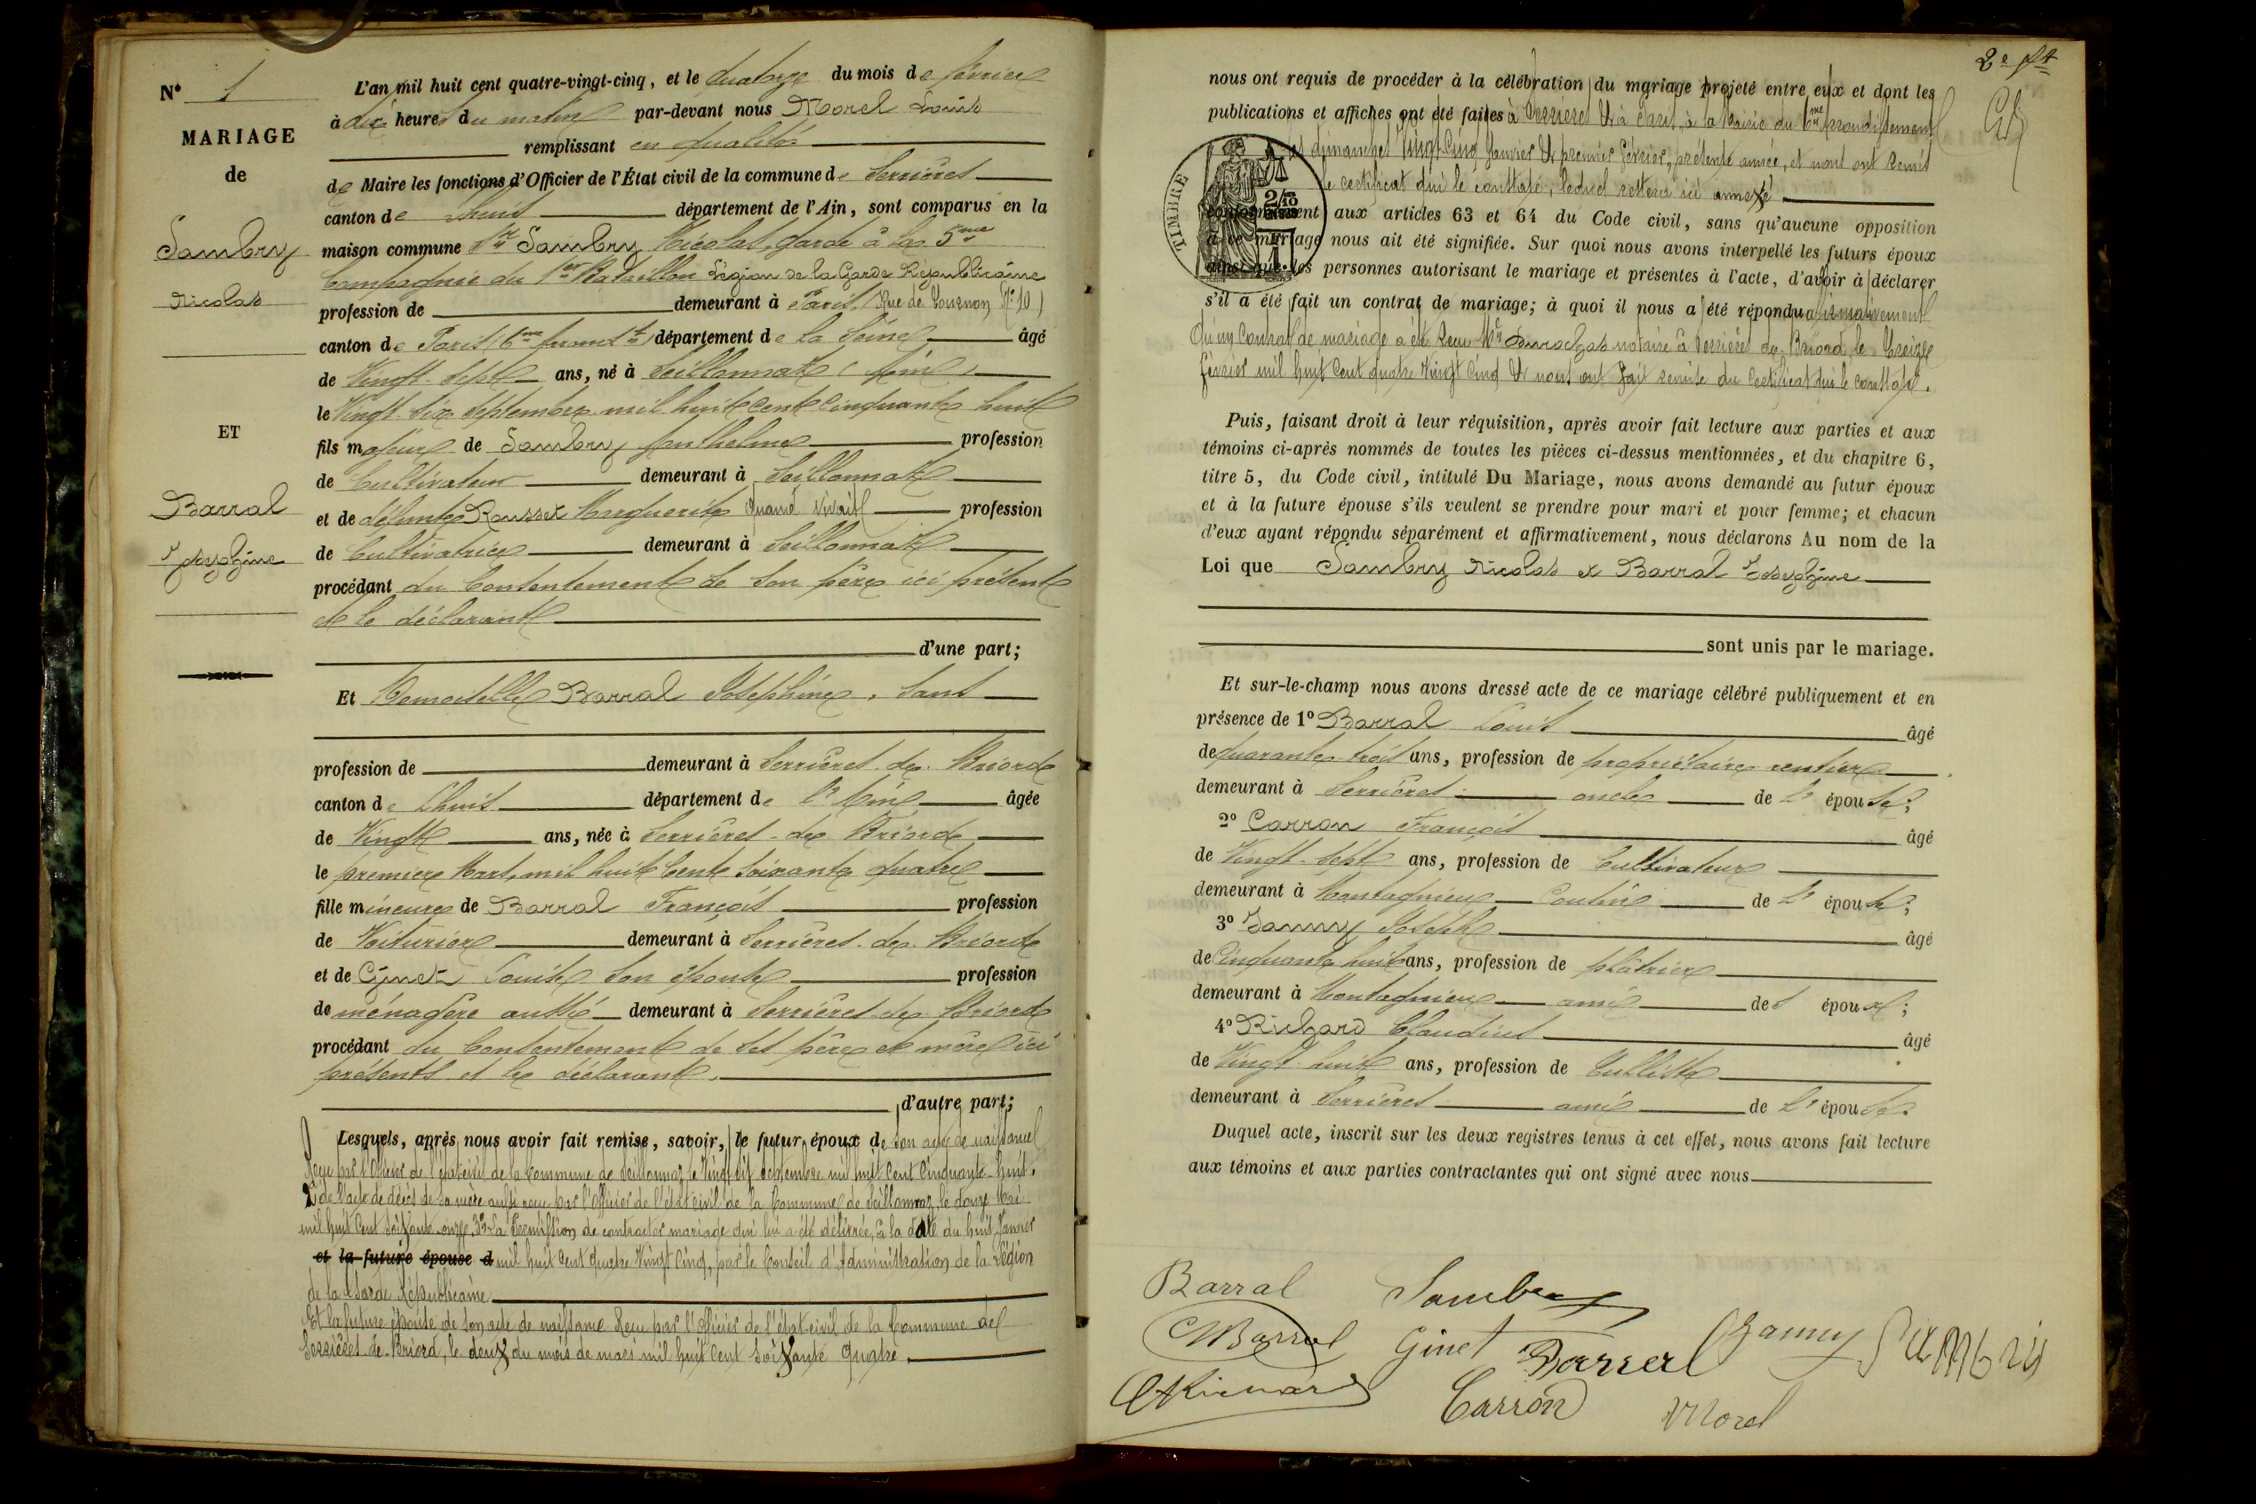 N° 1
MARIAGE
de
Sambry
Nicolas
ET
Barral
Joséphine
L'an mil huit cent quatre-vingt-cinq, et le quatorze du mois de février
à dix heures du matin par-devant nous Morel Louis
remplissant en qualité
de Maire les fonctions d'Officier de l'État civil de la commune de Serrières
canton de Lhuis département de l'Ain, sont comparus en la
maison commune Sr Sambry Nicolas, garde à la 5me
Compagnie du 1er Bataillon Légion de la Garde Républicaine
profession de demeurant à Paris (Rue de Tournon N° 10)
canton de Paris (6me Arrondt) département de la Seine âgé
de Vingt-Sept ans, né à Seillonnaz (Ain)
le Vingt-six Septembre mil huit cent cinquante huit
fils majeur de Sambry Anthelme profession
de Cultivateur demeurant à Seillonnaz
et de défunte Rousset Marguerite quand vivait profession
de Cultivatrice demeurant à Seillonnaz
procédant du Consentement de son père ici présent
et le déclarant
d'une part;
Et Demoiselle Barral Joséphine, sans
profession de demeurant à Serrières-de-Briord
canton de Lhuis département de l'Ain âgée
de Vingt ans, née à Serrières-de-Briord
le premier Mars mil huit Cent soixante quatre
fille mineure de Barral François profession
de Voiturier demeurant à Serrières-de-Briord
et de Gynet Louise son épouse profession
de ménagère aussi demeurant à Serrières-de-Briord
procédant du Consentement de ses père et mère ici
présents et le déclarant.
d'autre part;
Lesquels, après nous avoir fait remise, savoir, le futur époux de son acte de naissance
Reçu par l'Officier de l'état civil de la Commune de Seillonnaz le Vingt six septembre mil huit cent Cinquante-huit.
2° de l'acte de décès de sa mère aussi reçu par l'Officier de l'état civil de la Commune de Seillonnaz, le douze Mai
mil huit cent soixante-onze, 3° la Permission de contracter mariage qui lui a été délivrée, à la date du huit Janvier
et la future épouse d mil huit cent quatre Vingt Cinq, par le Conseil d'Administration de la Légion
de la Garde Républicaine
Et la future épouse de son acte de naissance Reçu par l'Officier de l'état civil de la Commune de
Serrières de Briord, le deux du mois de mars mil huit cent soixante quatre.
2e ft
nous ont requis de procéder à la célébration du mariage projeté entre eux et dont les
publications et affiches ont été faites à Serrières & à Paris, à la Mairie du 6me Arrondissement
les dimanches Vingt Cinq Janvier & premier février, présente année, et nous ont remis
le certificat qui le constate, lequel restera ici annexé
TIMBRE
conformément aux articles 63 et 64 du Code civil, sans qu'aucune opposition
à ce mariage nous ait été signifiée. Sur quoi nous avons interpellé les futurs époux
ainsi que les personnes autorisant le mariage et présentes à l'acte, d'avoir à déclarer
s'il a été fait un contrat de mariage; à quoi il nous a été répondu affirmativement
Qu'un Contrat de mariage a été Reçu Me notaire à Serrières de Briord le Treize
février mil huit Cent quatre Vingt Cinq & nous ont fait remise du Certificat qui le constate.
Puis, faisant droit à leur réquisition, après avoir fait lecture aux parties et aux
témoins ci-après nommés de toutes les pièces ci-dessus mentionnées, et du chapitre 6,
titre 5, du Code civil, intitulé Du Mariage, nous avons demandé au futur époux
et à la future épouse s'ils veulent se prendre pour mari et pour femme; et chacun
d'eux ayant répondu séparément et affirmativement, nous déclarons Au nom de la
Loi que Sambry Nicolas et Barral Joséphine
sont unis par le mariage.
Et sur-le-champ nous avons dressé acte de ce mariage célébré publiquement et en
présence de 1° Barral Louis âgé
de quarante trois ans, profession de propriétaire rentier
demeurant à Serrières oncle de l'épouse;
2° Carron François âgé
de Vingt-Sept ans, profession de Cultivateur
demeurant à Montagnieu Cousin de l'épouse;
3° Janny Joseph âgé
de Cinquante huit ans, profession de plâtrier
demeurant à Montagnieu ami des époux;
4° Richard Claudius âgé
de Vingt huit ans, profession de Tulliste
demeurant à Serrières ami de l'épouse.
Duquel acte, inscrit sur les deux registres tenus à cet effet, nous avons fait lecture
aux témoins et aux parties contractantes qui ont signé avec nous
Barral Sambry
Barral Ginet Barral Janny Sambry
Richard Carron Morel